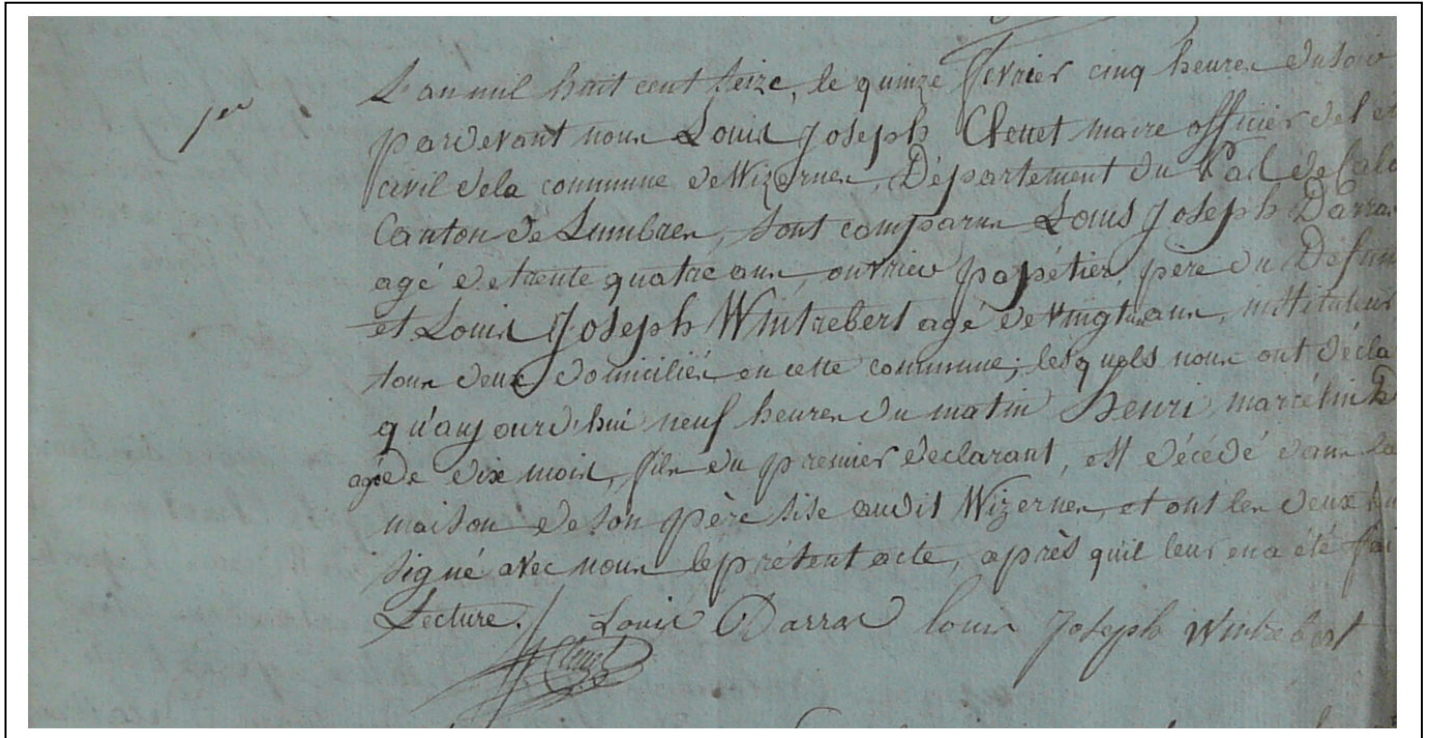 L'an mil huit cent seize, le quinze fevrier cinq heures du soir
pardevant nous Louis Joseph Clenet maire officier de l'et
civil de la commune de Wizernes, Département du Pas de Cala
Canton de Lumbres, sont comparus Louis Joseph Darras
agé de trente quatre ans, ouvrier papétier, père du Défun
et Louis Joseph Wintrebert agé de vingt ans, instituteur
tous deux domiciliés en cette commune; lesquels nous ont décla
qu'aujourd'hui neuf heures du matin henri marcelin D
agé de dix mois, fils du premier déclarant, est décédé dans la
maison de son père sise audit Wizernes, et ont les deux
signé avec nous le présent acte, après qu'il leur en a été fai
Lecture. Louis Darras louis Joseph Wintrebert
Clenet